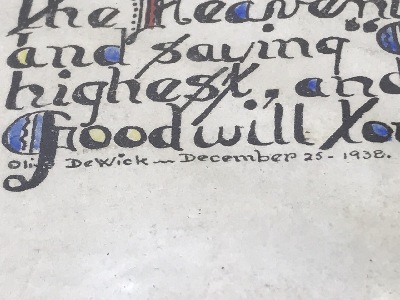 the Heaven
and saying "G
highest, and
Goodwill to
Olive DeWick — December 25 - 1938.